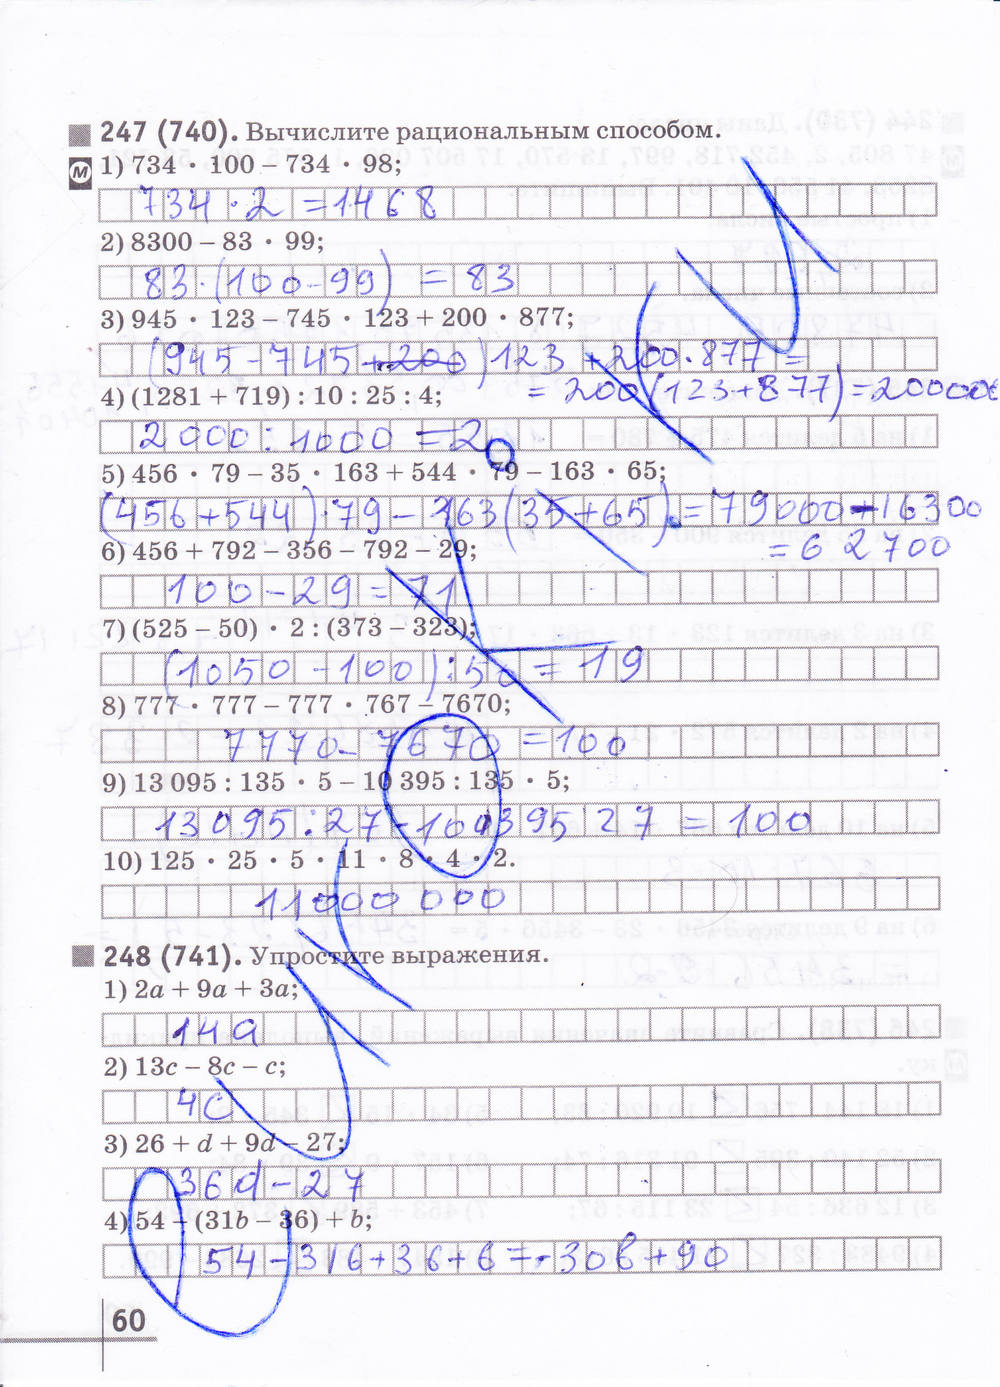 247 (740). Вычислите рациональным способом.
м 1) 734 · 100 – 734 · 98;
734 · 2 = 1468
2) 8300 – 83 · 99;
83 · (100 - 99) = 83
3) 945 · 123 – 745 · 123 + 200 · 877;
(945 - 745 + 200) 123 + 200 · 877 =
4) (1281 + 719) : 10 : 25 : 4;
= 200 (123 + 877) = 200000
2000 : 1000 = 2
5) 456 · 79 – 35 · 163 + 544 · 79 – 163 · 65;
(456 + 544) · 79 - 163 (35 + 65) = 79000 - 16300
6) 456 + 792 – 356 – 792 – 29;
= 62700
100 - 29 = 71
7) (525 – 50) · 2 : (373 – 323);
(1050 - 100) : 50 = 19
8) 777 · 777 – 777 · 767 – 7670;
7770 - 7670 = 100
9) 13 095 : 135 · 5 – 10 395 : 135 · 5;
13095 : 27 - 10395 : 27 = 100
10) 125 · 25 · 5 · 11 · 8 · 4 · 2.
11000 000
248 (741). Упростите выражения.
1) 2a + 9a + 3a;
14a
2) 13c – 8c – c;
4c
3) 26 + d + 9d – 27;
36d - 27
4) 54 – (31b – 36) + b;
54 - 31б + 36 + б = - 30б + 90
60